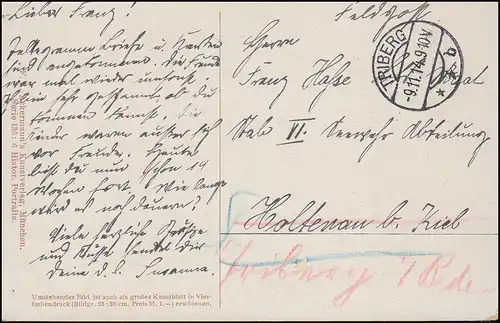 Lieber Franz!
Telegramm Briefe u. Karten
sind angekommen. Die Freude
war mal wieder umsonst.
Bin sehr gespannt ob du
kommen kannst. Die
Kinder waren außer sich
vor Freude. Heute
bist du nun schon 14
Wochen fort. Wie lange
wird es noch dauern?
Viele herzliche Grüße
und Küsse sendet Dir
deine d. l. Susanna.
Feldpost
Herrn
Franz Hasse
Stab III. Seewehr Abteilung
Holtenau b. Kiel
Triberg i/Bade
TRIBERG
-9.11.14.9-10V.
* * b
Ackermann's Kunstverlag, München.
Serie 138: 6 Histor. Portraits.
Umstehendes Bild ist auch als großes Kunstblatt in Vier-
farbendruck (Bildgr. 23:28 cm, Preis M. 1.—) erschienen.